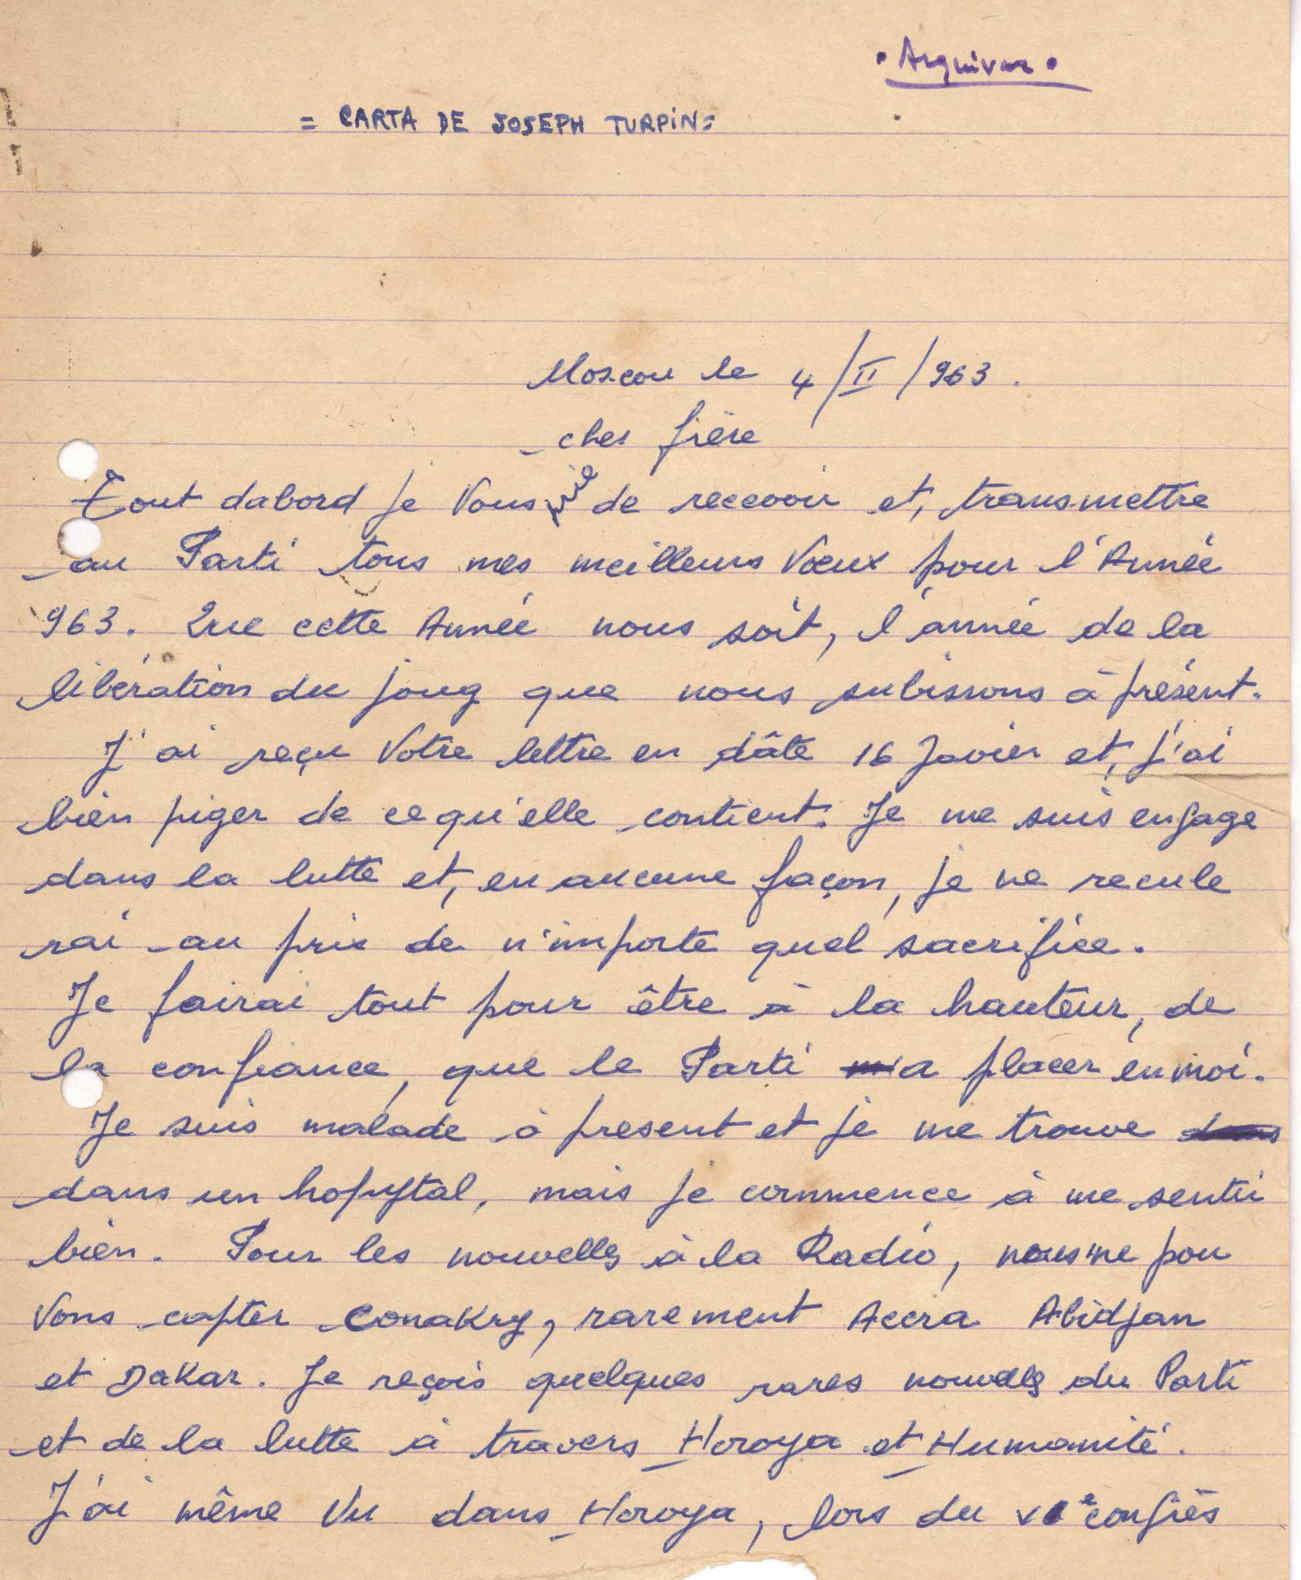 . Arquivar .
= CARTA DE JOSEPH TURPIN =
Moscou le 4/II/963.
cher frère
Tout dabord je Vous prie de recevoir et, transmettre
au Parti tous mes meilleurs Vœux pour l'Année
963. Que cette Année nous soit, l'année de la
libération du joug que nous subissons à présent.
J'ai reçu Votre lettre en dâte 16 Javier et, j'ai
bien piger de ce qu'elle contient. Je me suis engage
dans la lutte et, en aucune façon, je ne recule
rai au prix de n'importe quel sacrifice.
Je fairai tout pour être à la hauteur, de
la confiance, que le Parti m'a placer en moi.
Je suis malade à present et je me trouve dans
dans un hopytal, mais je commence à me sentir
bien. Pour les nouvelles à la Radio, nous ne pou
Vons capter Conakry, rarement Accra Abidjan
et Dakar. Je reçois quelques rares nouvelles du Parti
et de la lutte à travers Horoya et Humanité.
J'ai même Vu dans Horoya, lors du VIe congrès